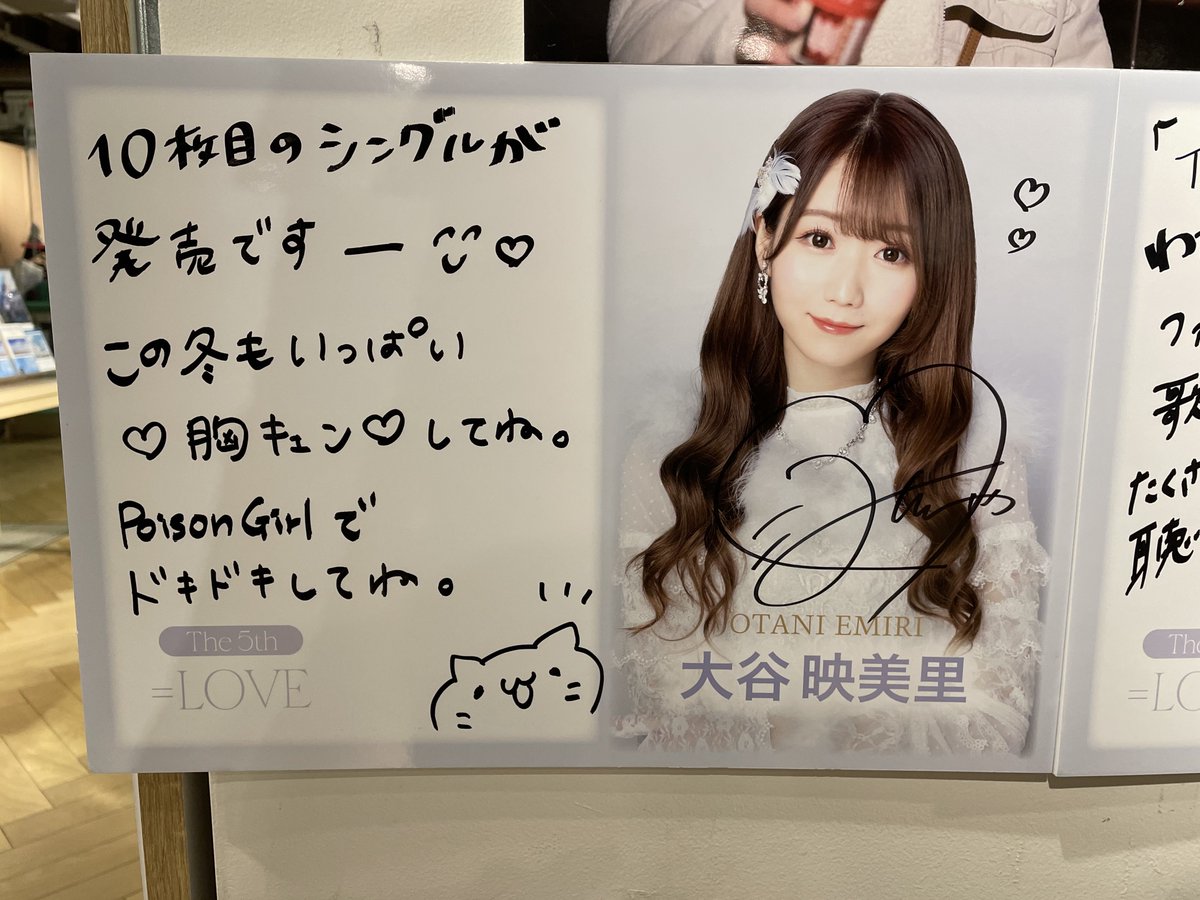 10枚目のシングルが
発売ですー♡
この冬もいっぱい
♡胸キュン♡してね。
Poison Girlで
ドキドキしてね。
The 5th
=LOVE
OTANI EMIRI
大谷 映美里
「T
わ
フ
歌
たくさ
聴
The
=LO